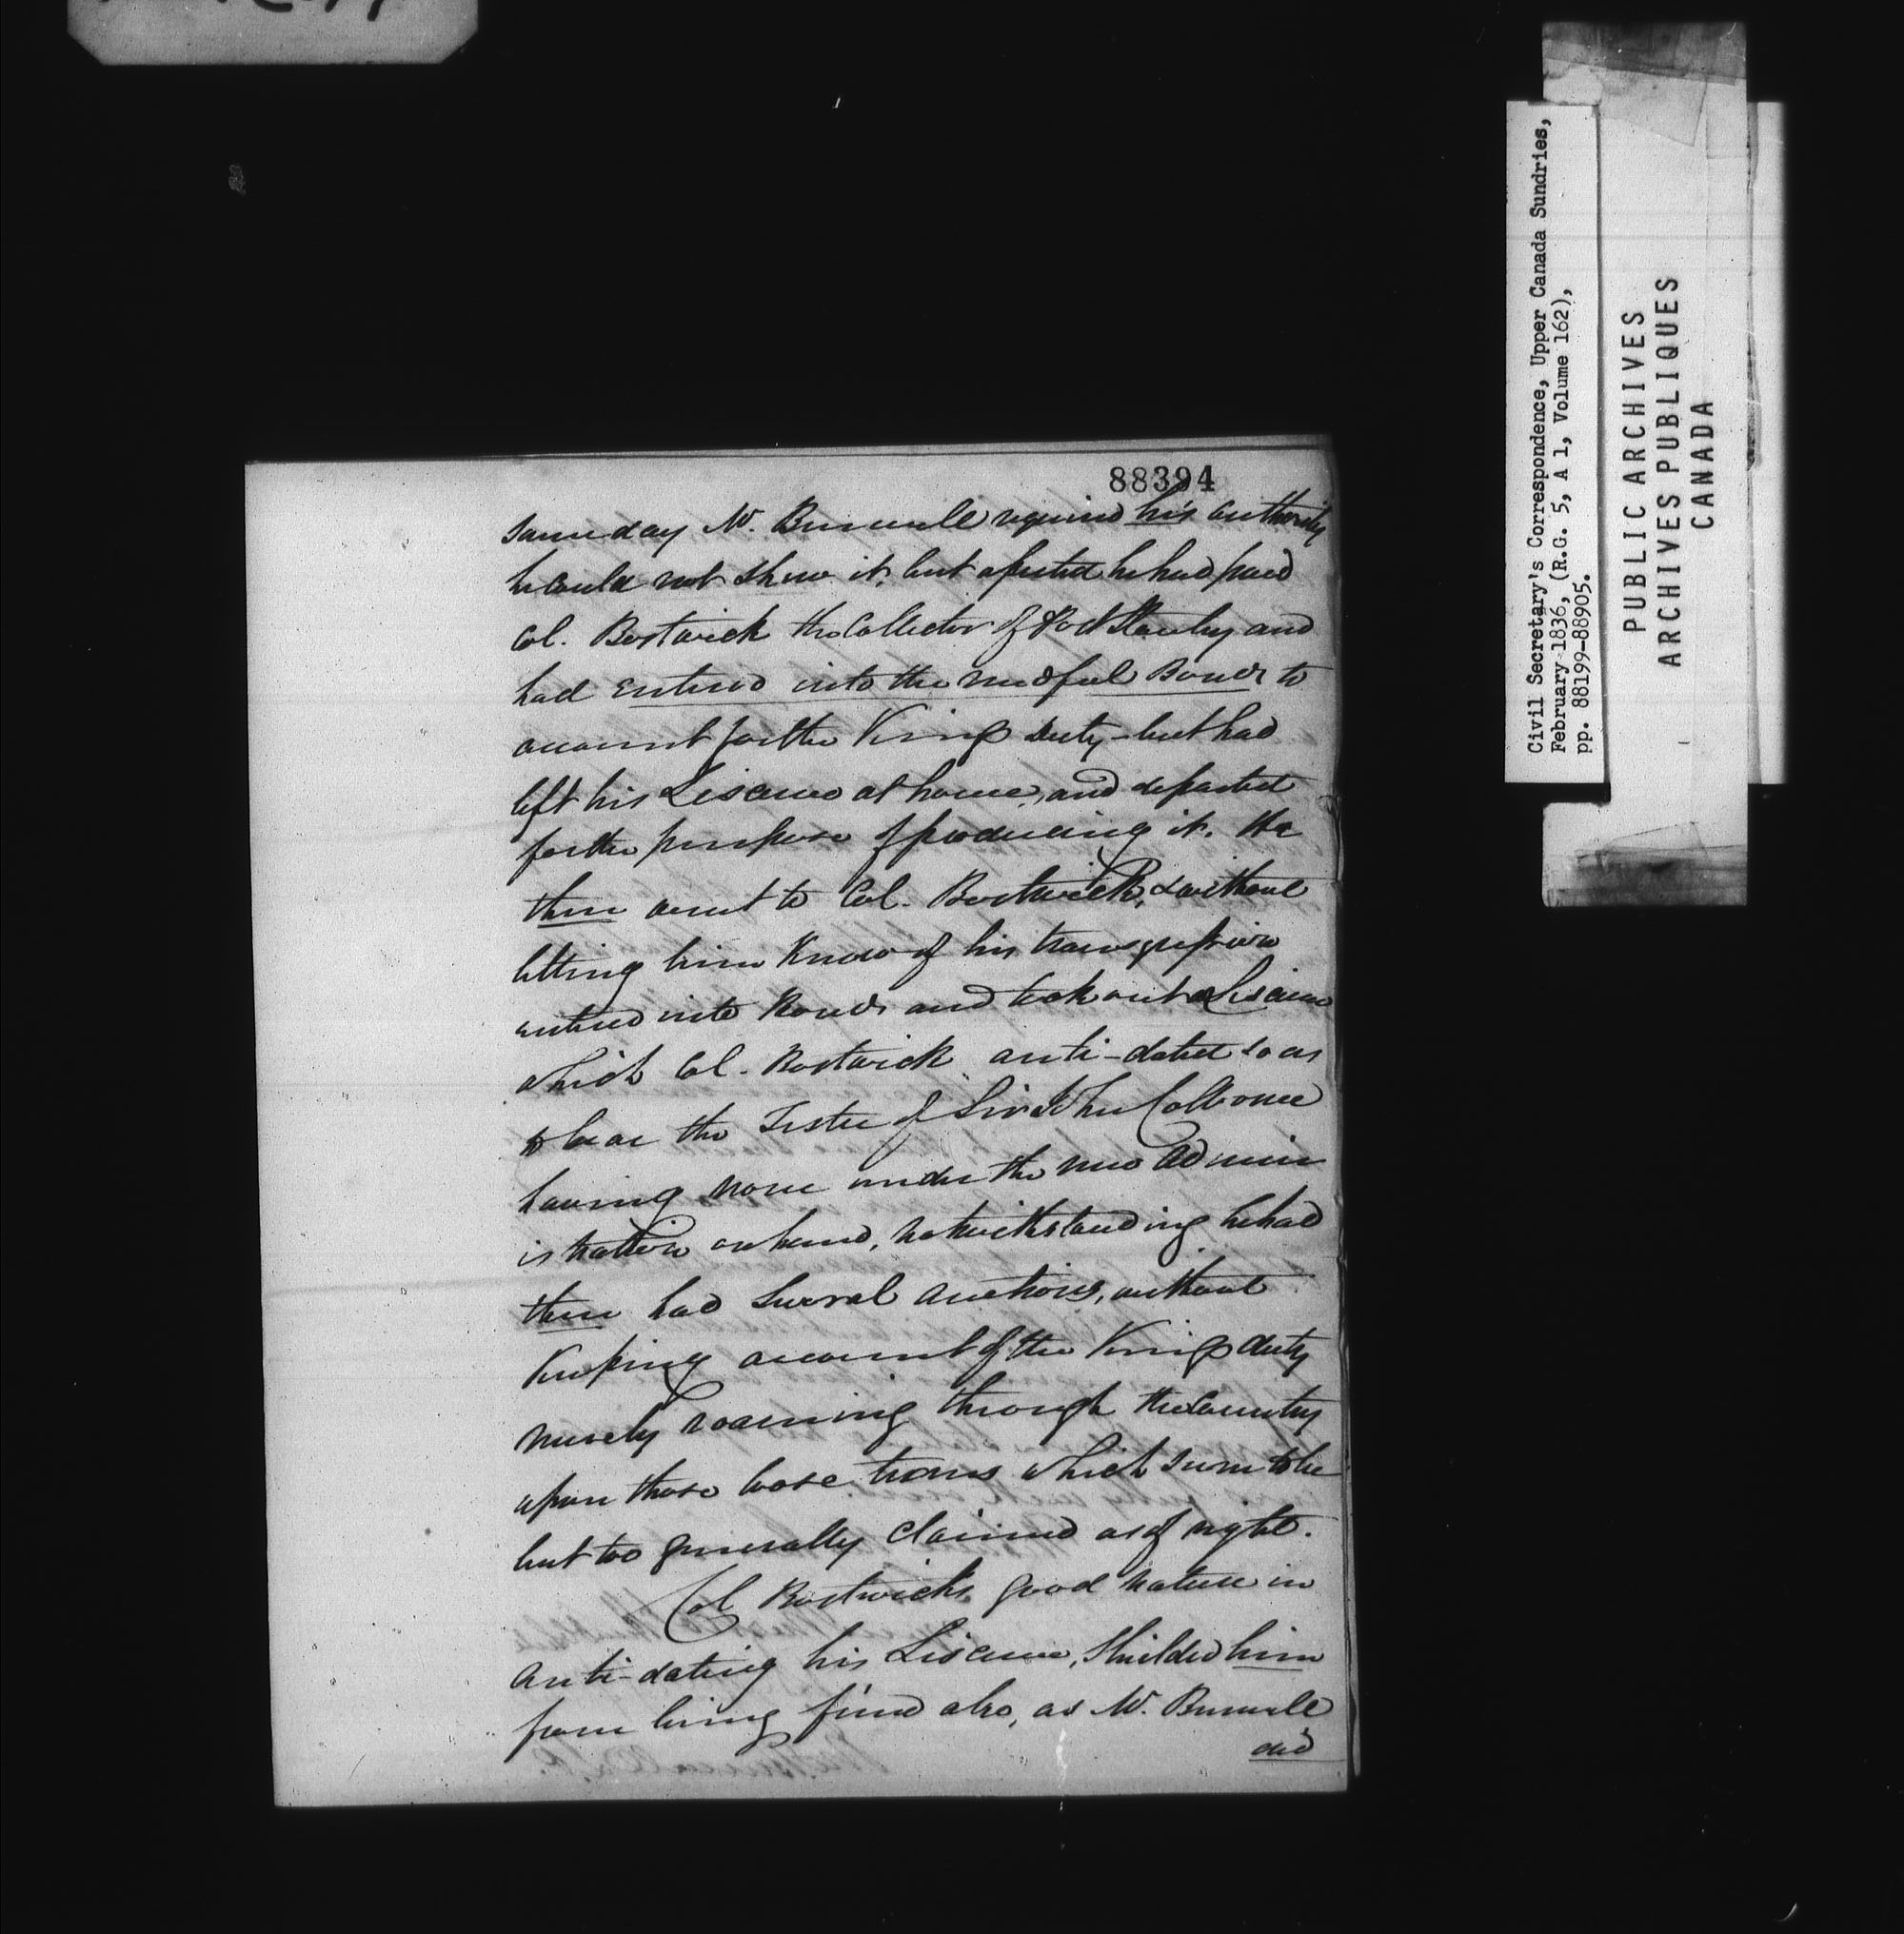 88394
same day Mr. Burwell required his authority
he could not shew it, but asserted he had paid
Col. Bostwick the Collector of Port Stanley and
had entered into the needful Bonds to
account for the Kings duty – but had
left his Lisence at home, and departed
for the purpose of producing it. He
then went to Col. Bostwick, & without
letting him know of his transgression
entered into Bonds and took out a Lisence
which Col. Bostwick anti-dated so as
to bear the Teste of Sir John Colborne
having none under the new Admin
istration on hand, notwithstanding he had
then had several auctions, without
keeping account of the Kings duty
merely roaming through the Country
upon those loose terms which seem to be
but too generally claimed as of right.
Col Bostwick's good nature in
anti-dating his Lisence, shielded him
from being fined also, as Mr. Burwell
did
Civil Secretary's Correspondence, Upper Canada Sundries,
February 1836, (R.G. 5, A 1, Volume 162),
pp. 88199-88905.
PUBLIC ARCHIVES
ARCHIVES PUBLIQUES
CANADA